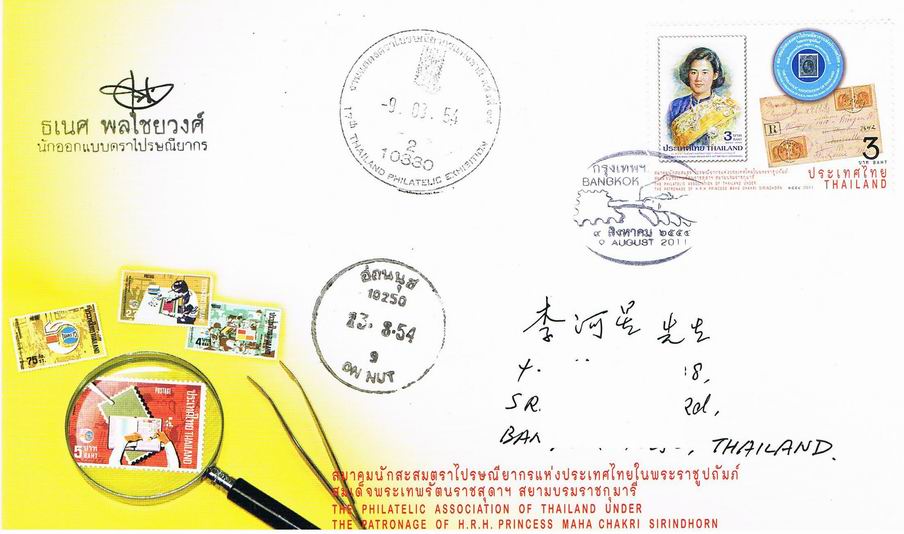 ธเนศ พลไชยวงศ์
นักออกแบบตราไปรษณียากร
-9. 03. 54
2
10330
THAILAND PHILATELIC EXHIBITION
3
ประเทศไทย THAILAND
R
3
บาท BAHT
ประเทศไทย
THAILAND
สมาคมนักสะสมตราไปรษณียากรแห่งประเทศไทยในพระราชูปถัมภ์
สมเด็จพระเทพรัตนราชสุดาฯ สยามบรมราชกุมารี
THE PHILATELIC ASSOCIATION OF THAILAND UNDER
THE PATRONAGE OF H.R.H. PRINCESS MAHA CHAKRI SIRINDHORN
กรุงเทพฯ
BANGKOK
๙ สิงหาคม ๒๕๕๔
9 AUGUST 2011
อ่อนนุช
10250
23. 8.54
9
ON NUT
李河 先生
8,
SR. Rd,
BAN THAILAND.
75
4
POSTAGE
ประเทศไทย THAILAND
5
บาท
BAHT
สมาคมนักสะสมตราไปรษณียากรแห่งประเทศไทยในพระราชูปถัมภ์
สมเด็จพระเทพรัตนราชสุดาฯ สยามบรมราชกุมารี
THE PHILATELIC ASSOCIATION OF THAILAND UNDER
THE PATRONAGE OF H.R.H. PRINCESS MAHA CHAKRI SIRINDHORN